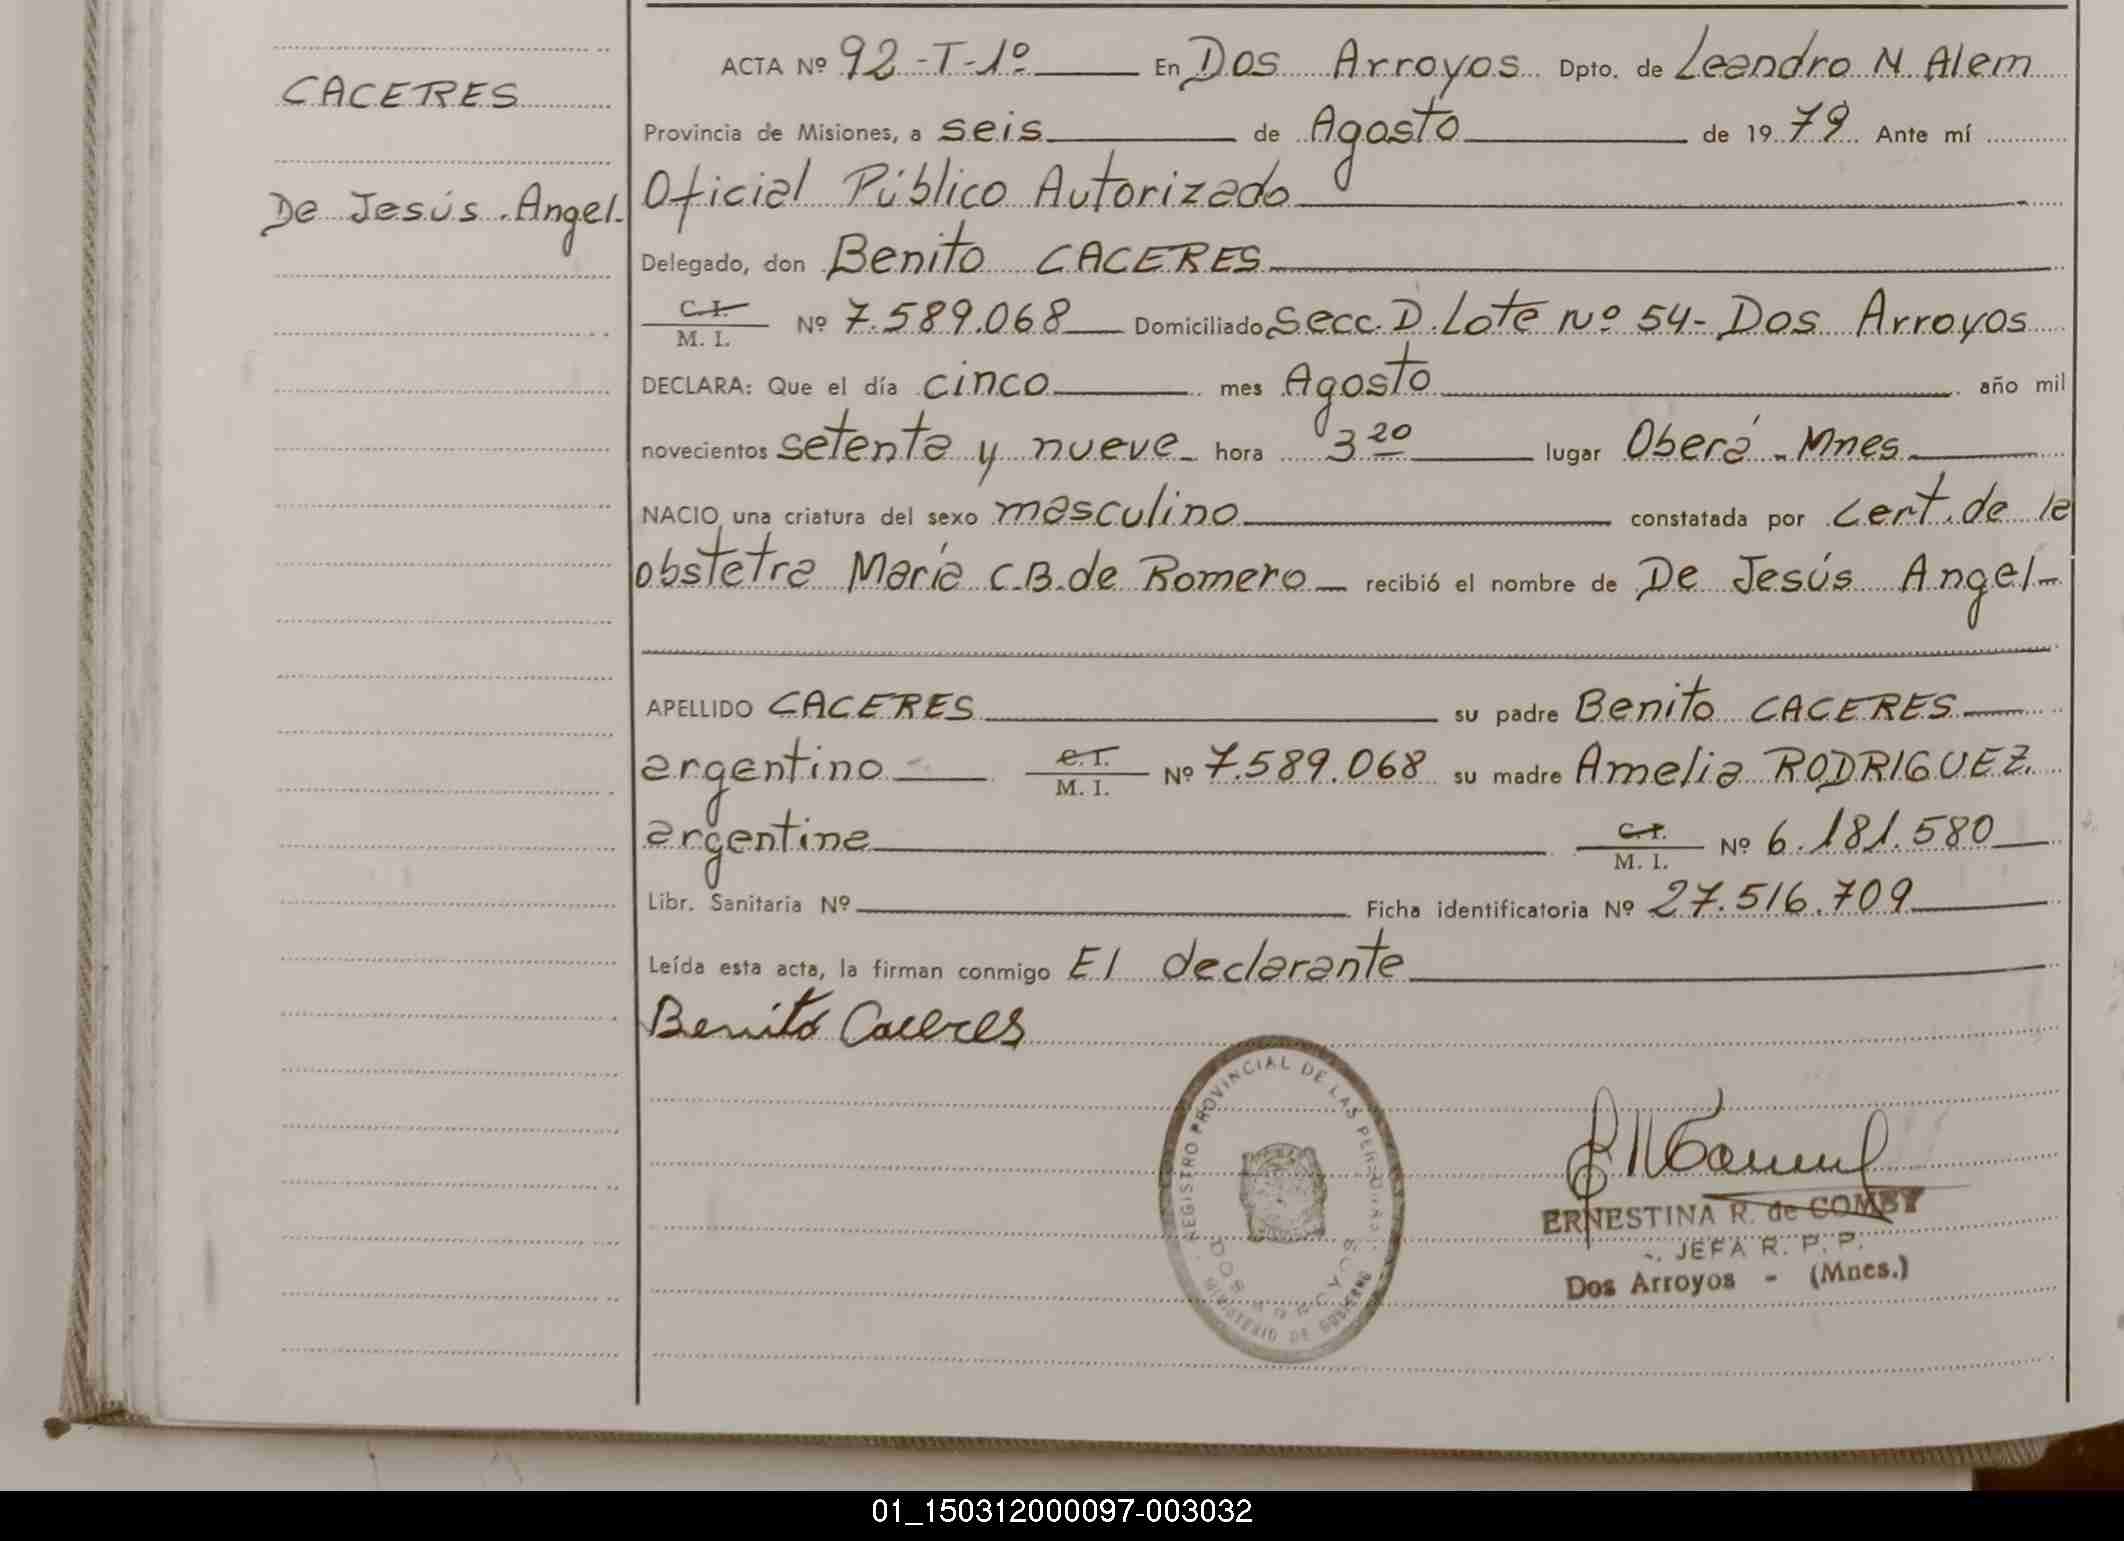 CACERES
De Jesús Angel
ACTA Nº 92-T-1º En Dos Arroyos Dpto. de Leandro N. Alem
Provincia de Misiones, a seis de Agosto de 1979 Ante mí
Oficial Público Autorizado
Delegado, don Benito CACERES
C.I.
M. I. Nº 7.589.068 Domiciliado Secc. D. Lote nº 54- Dos Arroyos
DECLARA: Que el día cinco mes Agosto año mil
novecientos setenta y nueve hora 3 20 lugar Oberá - Mnes
NACIO una criatura del sexo masculino constatada por Cert. de la
obstetra María C.B. de Romero recibió el nombre de De Jesús Angel
APELLIDO CACERES su padre Benito CACERES
argentino C.I. M. I. Nº 7.589.068 su madre Amelia RODRIGUEZ.
argentina C.I. M. I. Nº 6.181.580
Libr. Sanitaria Nº Ficha identificatoria Nº 27.516.709
Leída esta acta, la firman conmigo El declarante
Benito Caceres
REGISTRO PROVINCIAL DE LAS PERSONAS
DOS ARROYOS
MINISTERIO DE GOBIERNO
ERNESTINA R. de COMBY
JEFA R. P. P.
Dos Arroyos - (Mnes.)
01_150312000097-003032